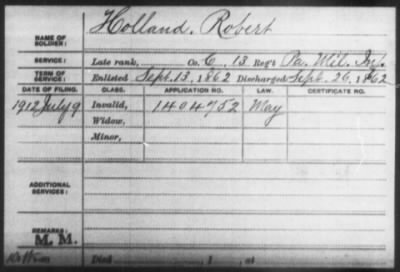 Holland, Robert
NAME OF SOLDIER:
SERVICE: Late rank, Co. C, 13 Reg't Pa. Mil. Inf.
TERM OF SERVICE: Enlisted Sept. 13, 1862 Discharged Sept. 26, 1862
DATE OF FILING. CLASS. APPLICATION NO. LAW. CERTIFICATE NO.
1912 July 9 Invalid, 1404752 May
Widow,
Minor,
ADDITIONAL SERVICES:
REMARKS:
M. M.
Died , 1 , at